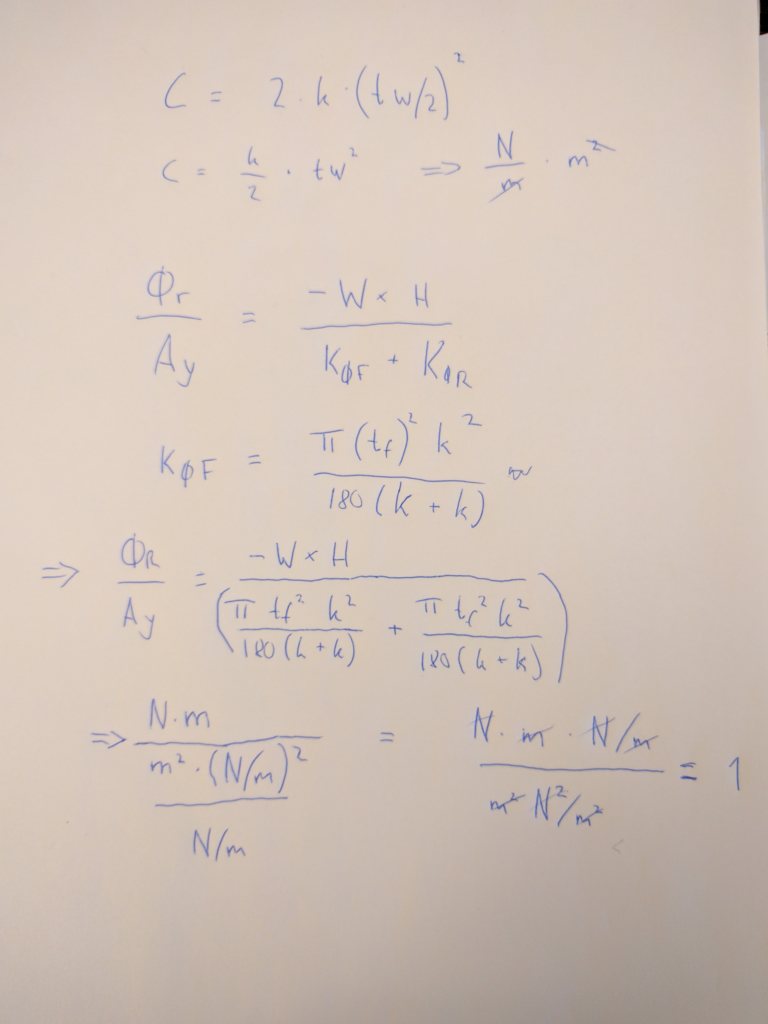 C = 2 · k · (tw/2)²
C = k/2 · tw² => N/m · m²
Φr/Ay = (-W × H)/(KφF + KφR)
KφF = (π (tf)² k²)/(180 (k + k))
=> ΦR/Ay = (-W × H)/((π tf² k²)/(180 (k + k)) + (π tr² k²)/(180 (k + k)))
=> (N·m)/((m² · (N/m)²)/(N/m)) = (N · m · N/m)/(m² N²/m²) = 1